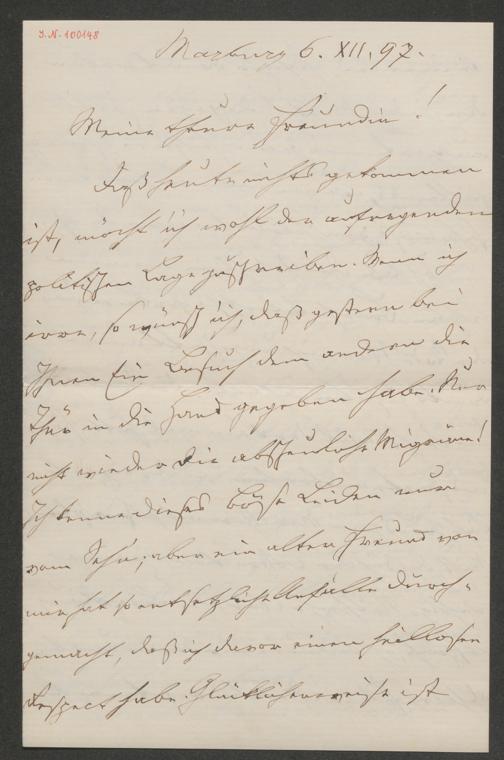 J.N. 100148
Marburg 6. XII. 97.
Meine theure Freundin!
Daß heute nichts gekommen
ist, möcht ich wohl der aufregenden
politischen Lage zuschreiben. Wenn ich
irre, so wünsch ich, daß gestern bei
Ihnen Ein Besuch dem andern die
Thür in die Hand gegeben habe. Nur
nicht wieder die abscheuliche Migräne!
Ich kenne dieses böse Leiden nur
vom Sehn; aber ein alter Freund von
mir hat so entsetzliche Anfälle durch-
gemacht, daß ich davor einen heillosen
Respect habe. Glücklicherweise ist